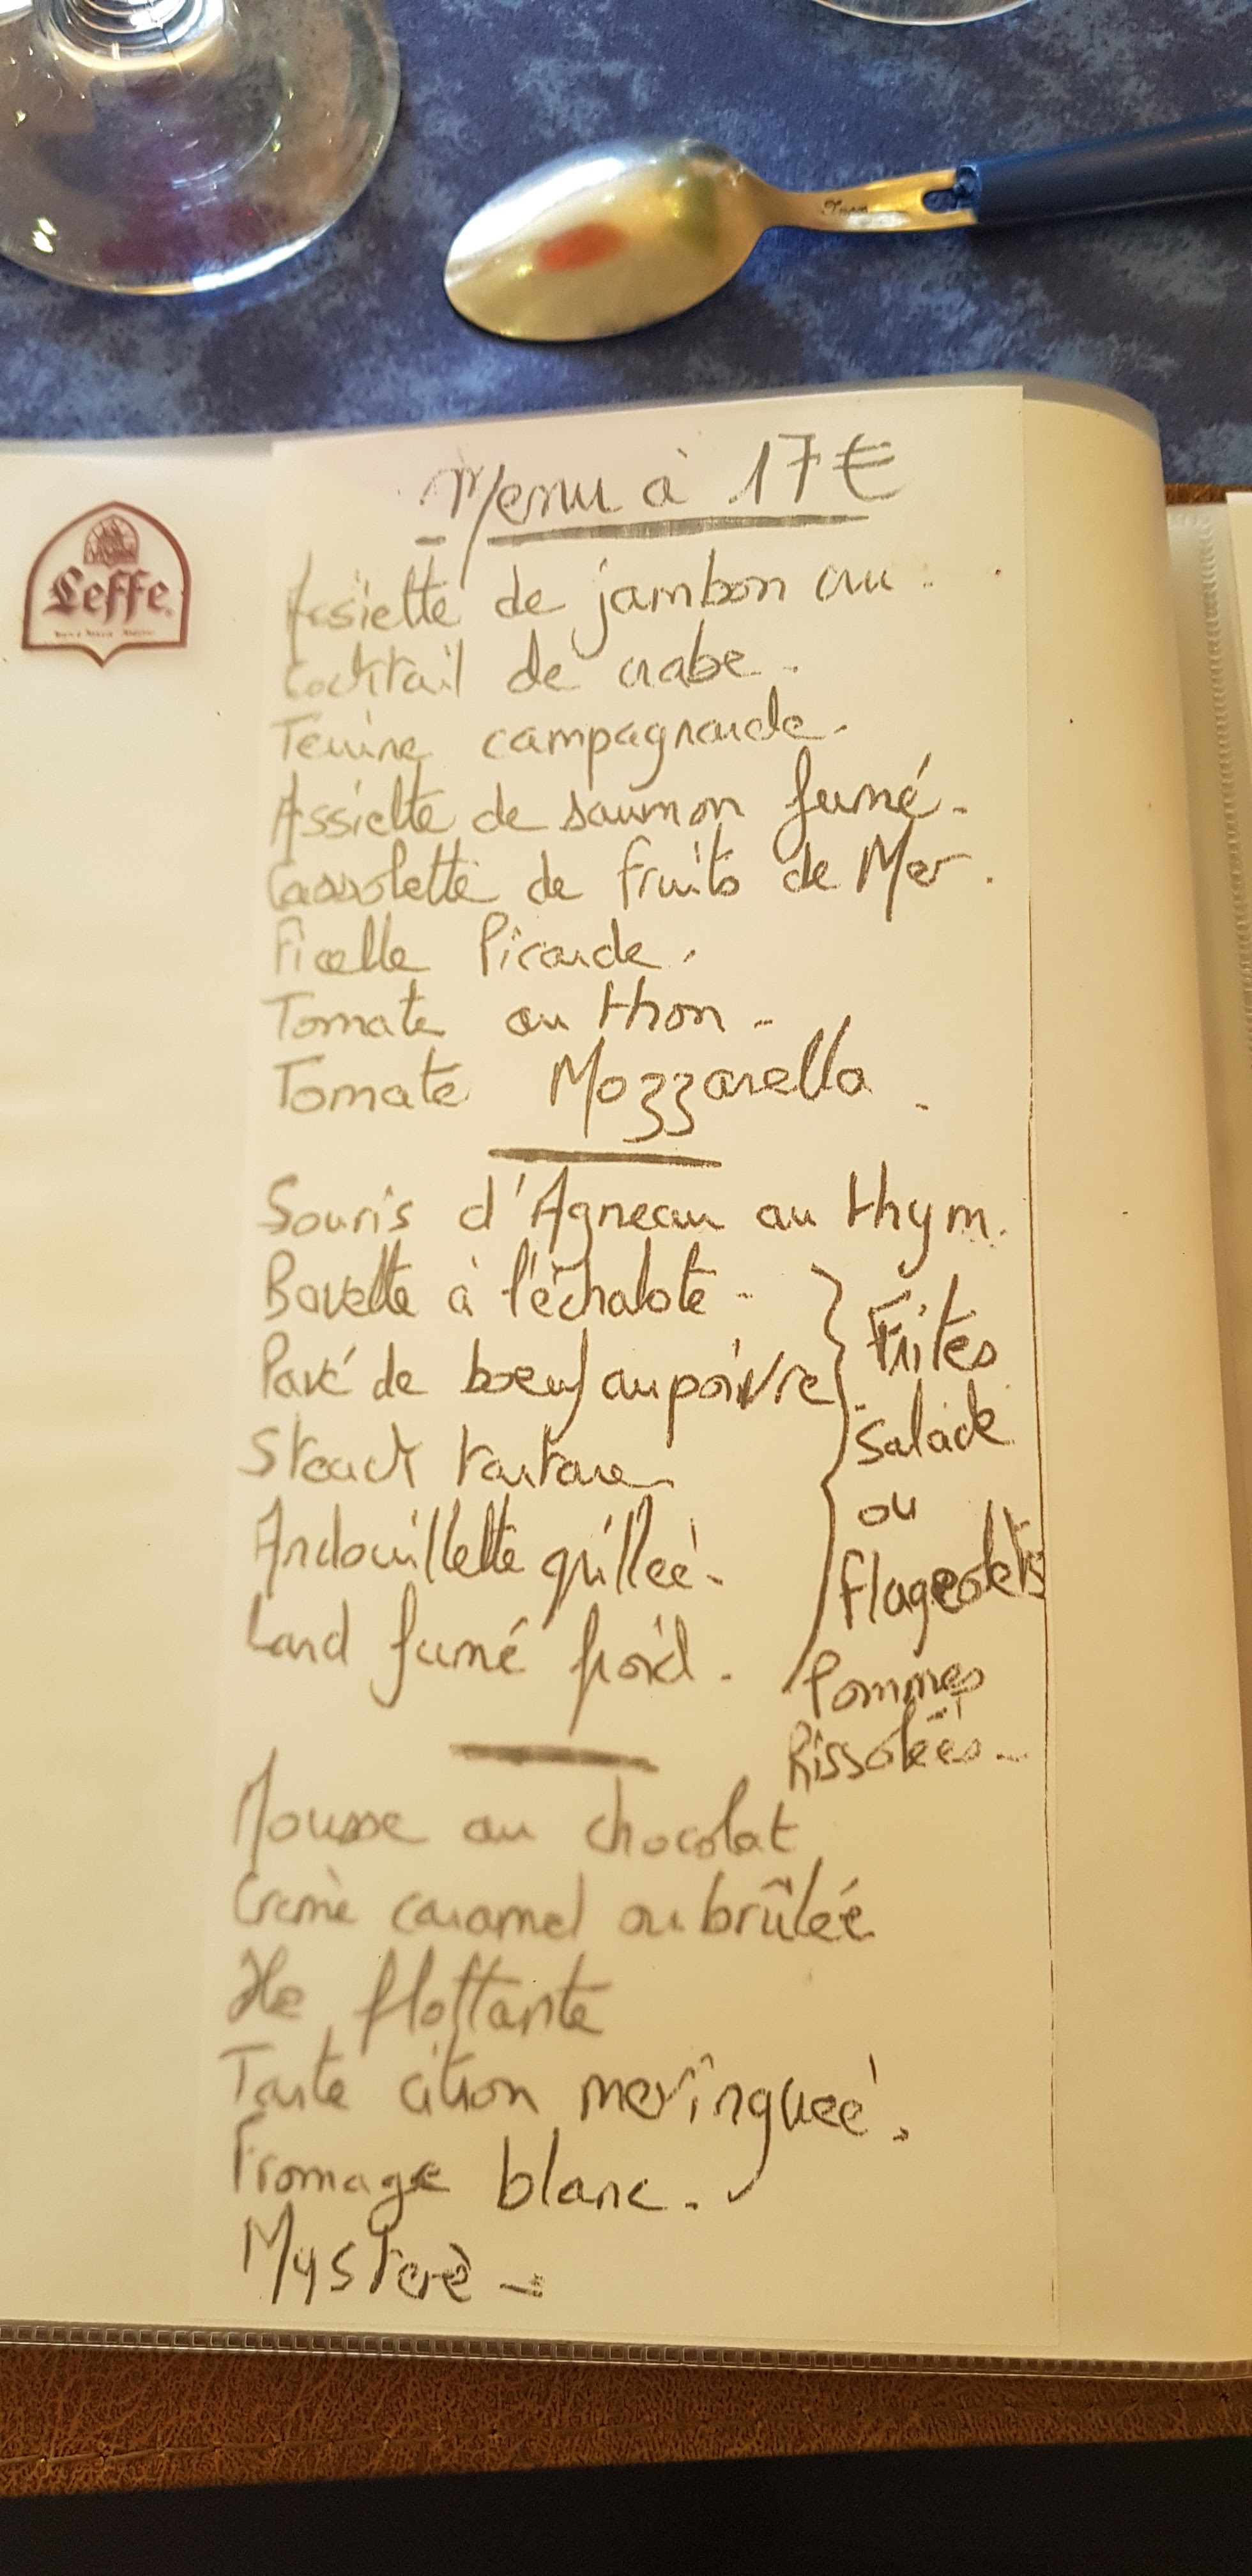 Leffe
Menu à 17€
Assiette de jambon cru.
Cocktail de crabe.
Terrine campagnarde.
Assiette de saumon fumé.
Cassolette de fruits de Mer.
Ficelle Picarde.
Tomate au thon.
Tomate Mozzarella.
Souris d'Agneau au thym.
Bavette à l'échalote.
Pavé de boeuf au poivre
Steack tartare
Andouillette grillée.
Lard fumé froid.
Frites
Salade
ou
flageolets
Pommes
Rissolées.
Mousse au chocolat
Crème caramel ou brûlée
Ile flottante
Tarte citron meringuée.
Fromage blanc.
Mystère